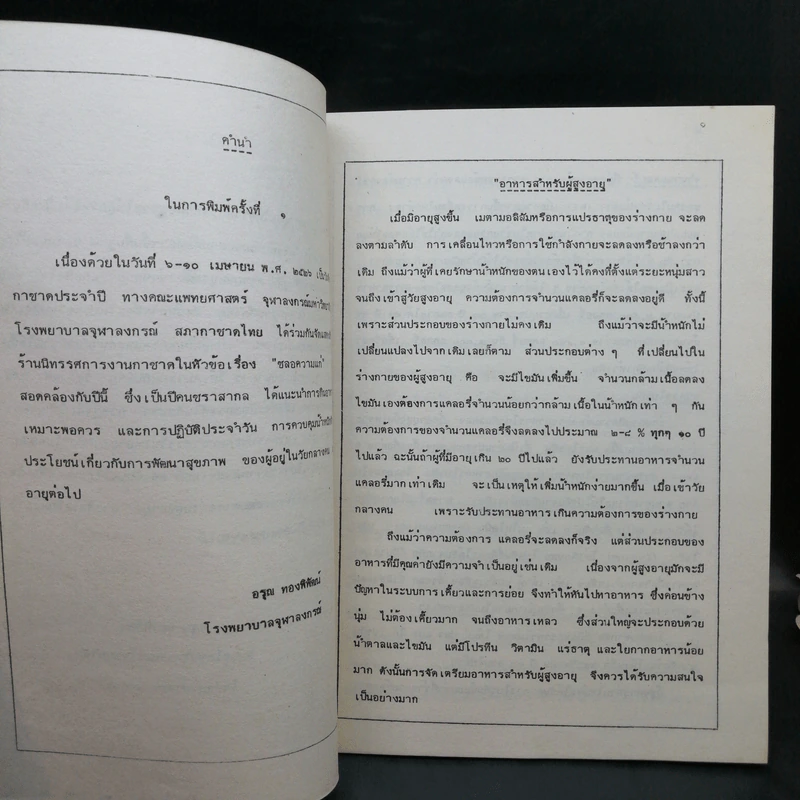 คำนำ
ในการพิมพ์ครั้งที่ ๑
เนื่องด้วยในวันที่ ๖-๑๐ เมษายน พ.ศ. ๒๕๒๖
กาชาดประจำปี ทางคณะแพทยศาสตร์ จุฬาลงกรณ์
โรงพยาบาลจุฬาลงกรณ์ สภากาชาดไทย ได้ร่วมกัน
ร้านนิทรรศการงานกาชาดในหัวข้อเรื่อง "ชลอความแก่"
สอดคล้องกับปีนี้ ซึ่งเป็นปีคนชราสากล ได้แนะนำการ
เหมาะพอควร และการปฏิบัติประจำวัน การควบคุมน้ำหนัก
ประโยชน์เกี่ยวกับการพัฒนาสุขภาพ ของผู้อยู่ในวัยกลางคน
อายุต่อไป
อรุณ ทองพิพัฒน์
โรงพยาบาลจุฬาลงกรณ์
"อาหารสำหรับผู้สูงอายุ"
เมื่อมีอายุสูงขึ้น เมตามอลิสัมหรือการแปรธาตุของร่างกาย จะลด
ลงตามลำดับ การเคลื่อนไหวหรือการใช้กำลังกายจะลดลงหรือช้าลงกว่า
เดิม ถึงแม้ว่าผู้ที่เคยรักษาน้ำหนักของตนเองไว้ได้คงที่ตั้งแต่ระยะหนุ่มสาว
จนถึงเข้าสู่วัยสูงอายุ ความต้องการจำนวนแคลอรี่ก็จะลดลงอยู่ดี ทั้งนี้
เพราะส่วนประกอบของร่างกายไม่คงเดิม ถึงแม้ว่าจะมีน้ำหนักไม่
เปลี่ยนแปลงไปจากเดิมเลยก็ตาม ส่วนประกอบต่าง ๆ ที่เปลี่ยนไปใน
ร่างกายของผู้สูงอายุ คือ จะมีไขมันเพิ่มขึ้น จำนวนกล้ามเนื้อลดลง
ไขมันเองต้องการแคลอรี่จำนวนน้อยกว่ากล้ามเนื้อในน้ำหนักเท่า ๆ กัน
ความต้องการของจำนวนแคลอรี่จึงลดลงไปประมาณ ๒-๘ % ทุกๆ ๑๐ ปี
ไปแล้ว ฉะนั้นถ้าผู้ที่มีอายุเกิน ๒๐ ปีไปแล้ว ยังรับประทานอาหารจำนวน
แคลอรี่มากเท่าเดิม จะเป็นเหตุให้เพิ่มน้ำหนักง่ายมากขึ้น เมื่อเข้าวัย
กลางคน เพราะรับประทานอาหารเกินความต้องการของร่างกาย
ถึงแม้ว่าความต้องการ แคลอรี่จะลดลงก็จริง แต่ส่วนประกอบของ
อาหารที่มีคุณค่ายังมีความจำเป็นอยู่เช่นเดิม เนื่องจากผู้สูงอายุมักจะมี
ปัญหาในระบบการเคี้ยวและการย่อย จึงทำให้หันไปหาอาหาร ซึ่งค่อนข้าง
นุ่ม ไม่ต้องเคี้ยวมาก จนถึงอาหารเหลว ซึ่งส่วนใหญ่จะประกอบด้วย
น้ำตาลและไขมัน แต่มีโปรตีน วิตามิน แร่ธาตุ และใยกากอาหารน้อย
มาก ดังนั้นการจัดเตรียมอาหารสำหรับผู้สูงอายุ จึงควรได้รับความสนใจ
เป็นอย่างมาก